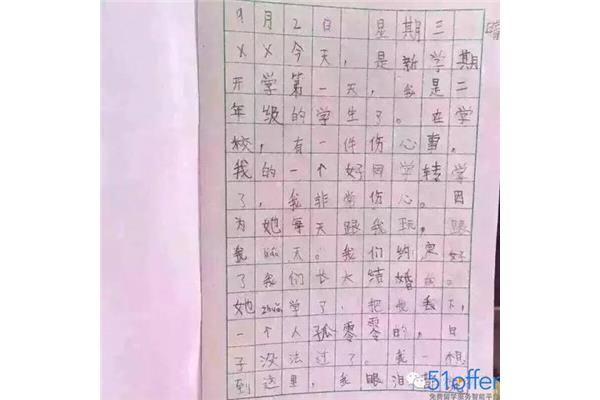 9月2日 星期三 晴
××今天，是新学期
开学第一天，我是二
年级的学生了。在学
校，有一件伤心事。
我的一个好同学转学
了，我非常伤心。因
为她每天跟我玩，跟
我聊天。我们约定好
了我们长大结婚
她zhuǎn学了，把我丢下，
一个人孤零零的，日
子没法过了。我一想
到这里，我眼泪
51offer
免费留学服务智能平台